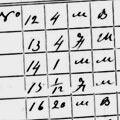 No 12 4 м В
13 4 д Ш
14 1 м м
15 1/12 д
16 20 м В